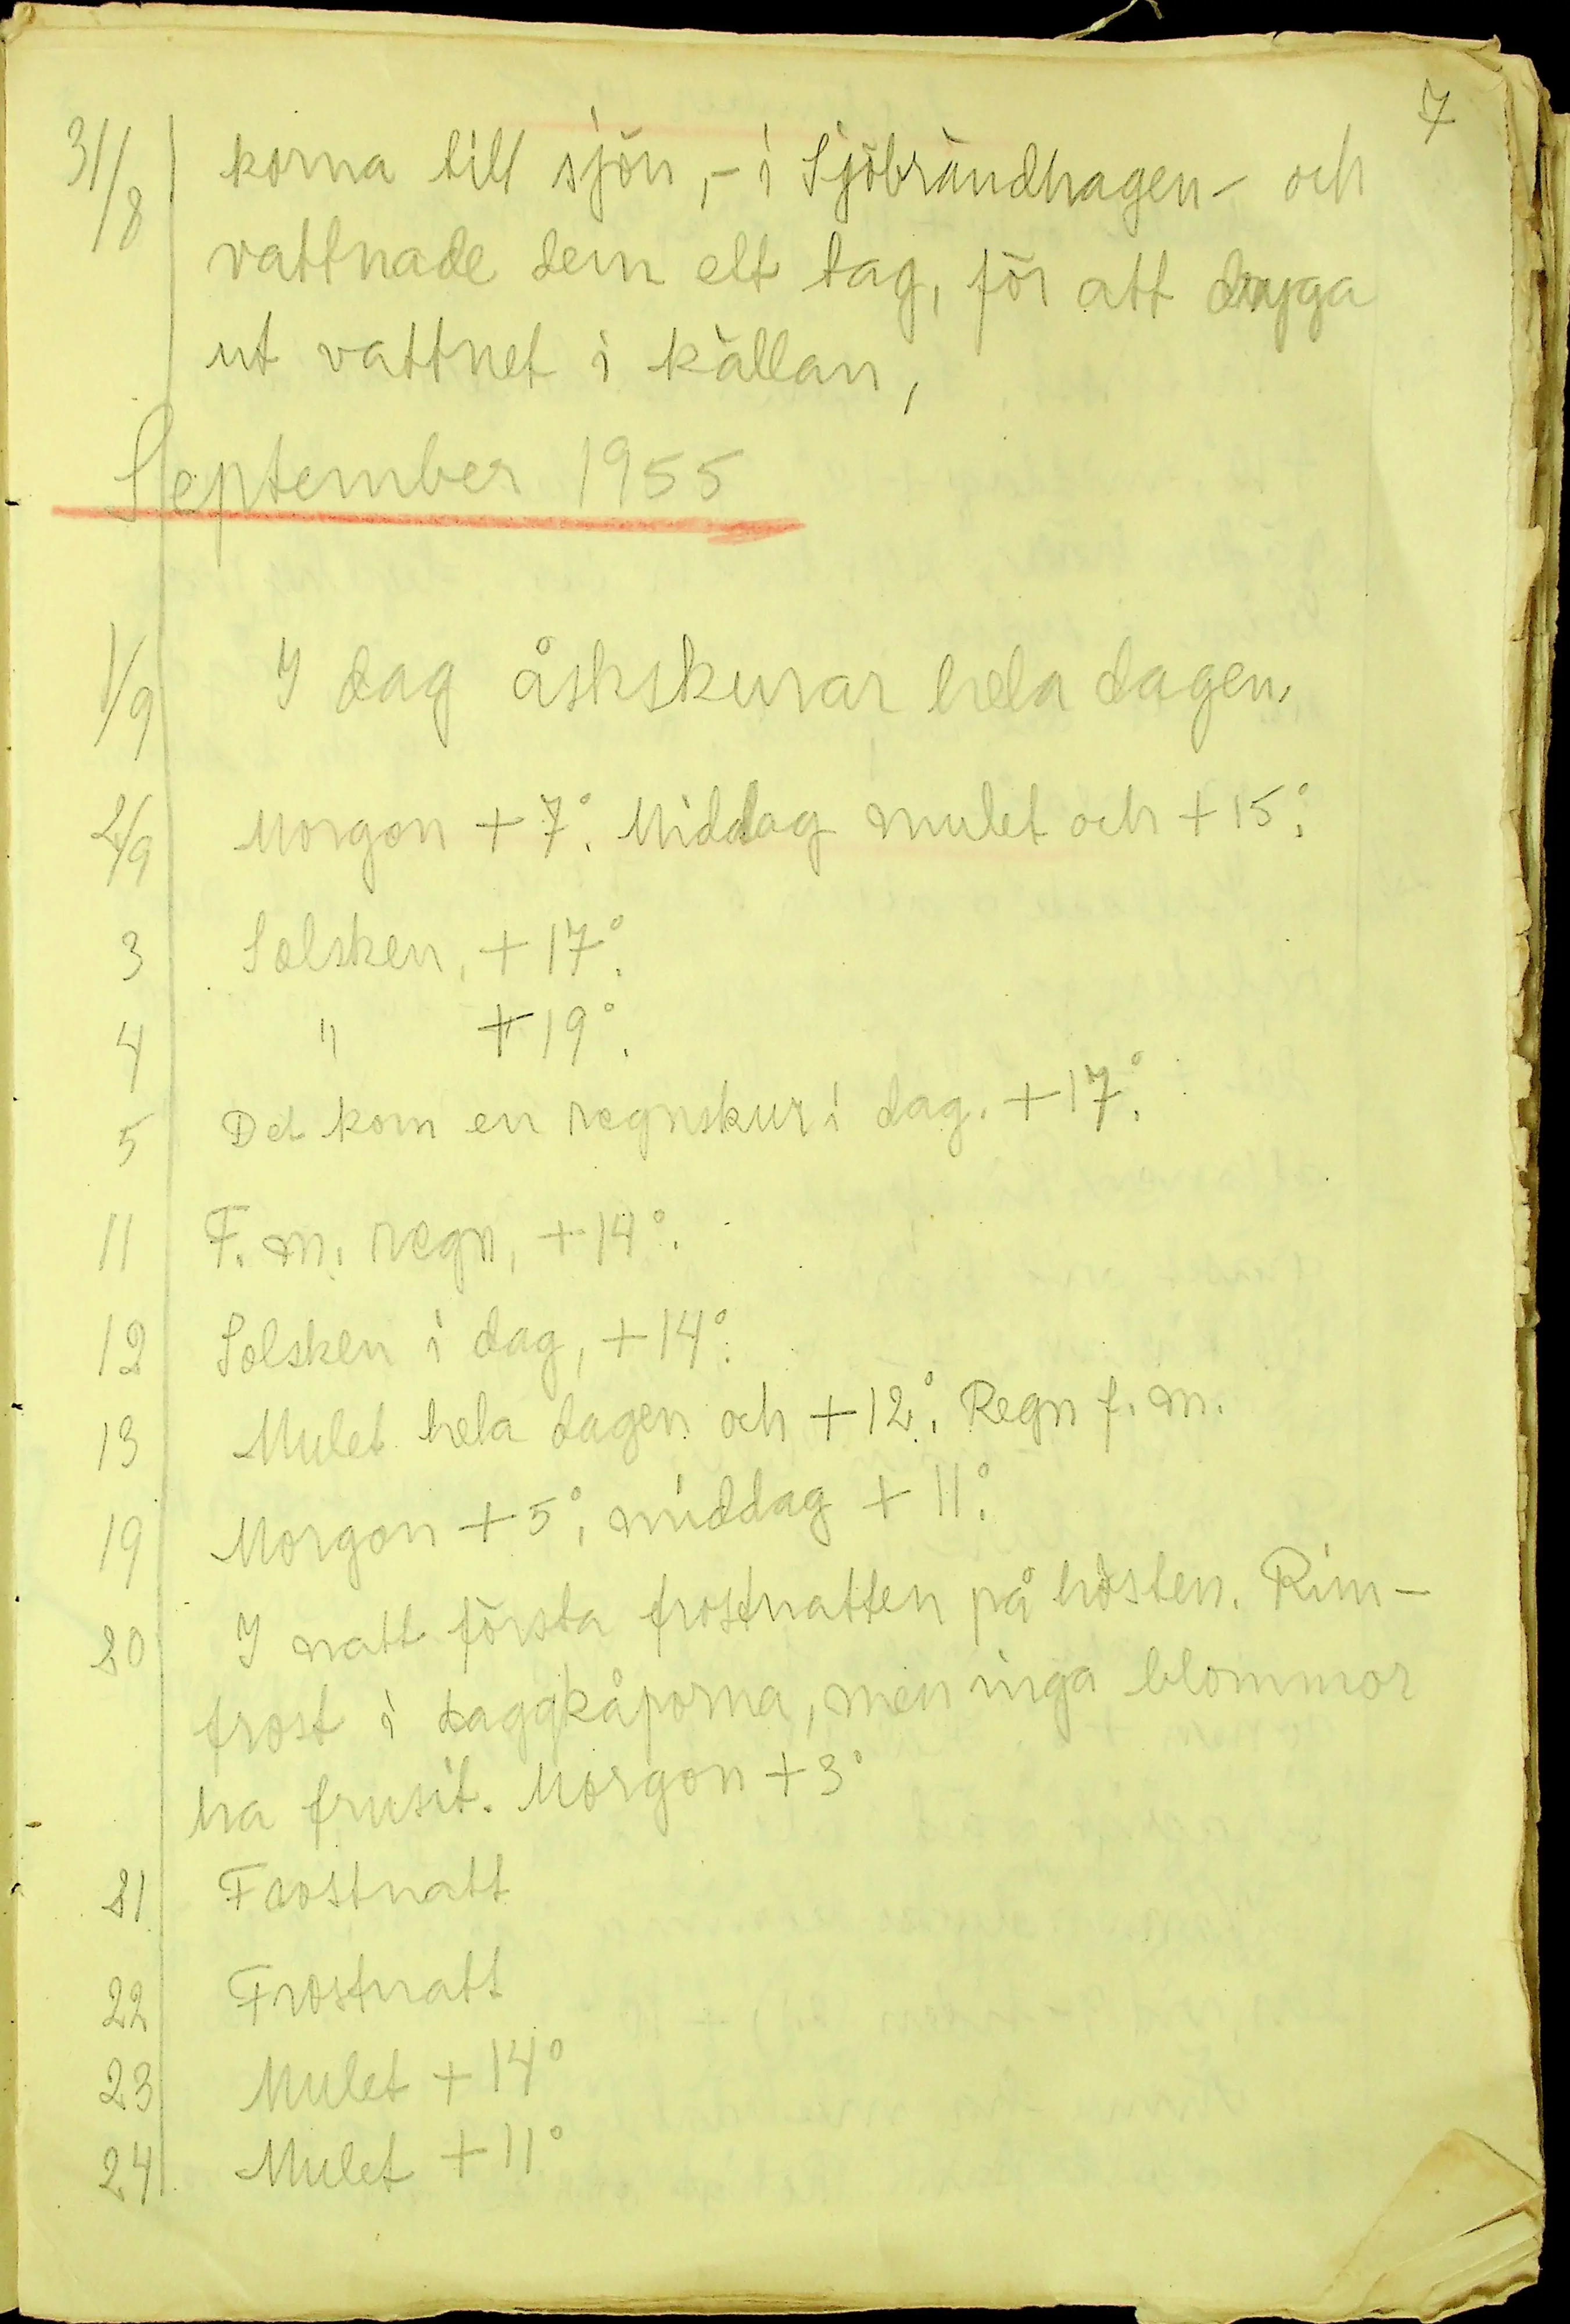 7
31/8 korna till sjön, - i Sjöbrändhagen - och
vattnade dem ett tag, för att dryga
ut vattnet i källan,
September 1955
1/9 I dag åskskurar hela dagen.
2/9 Morgon +7°. Middag mulet och +15°.
3 Solsken, +17°.
4 " +19°.
5 Det kom en regnskur i dag. +17°.
11 F. m. regn, +14°.
12 Solsken i dag, +14°.
13 Mulet hela dagen och +12°. Regn f. m.
19 Morgon +5°, middag +11°.
20 I natt första frostnatten på hösten. Rim-
frost i daggkåporna, men inga blommor
ha frusit. Morgon +3°
21 Frostnatt
22 Frostnatt
23 Mulet +14°
24 Mulet +11°